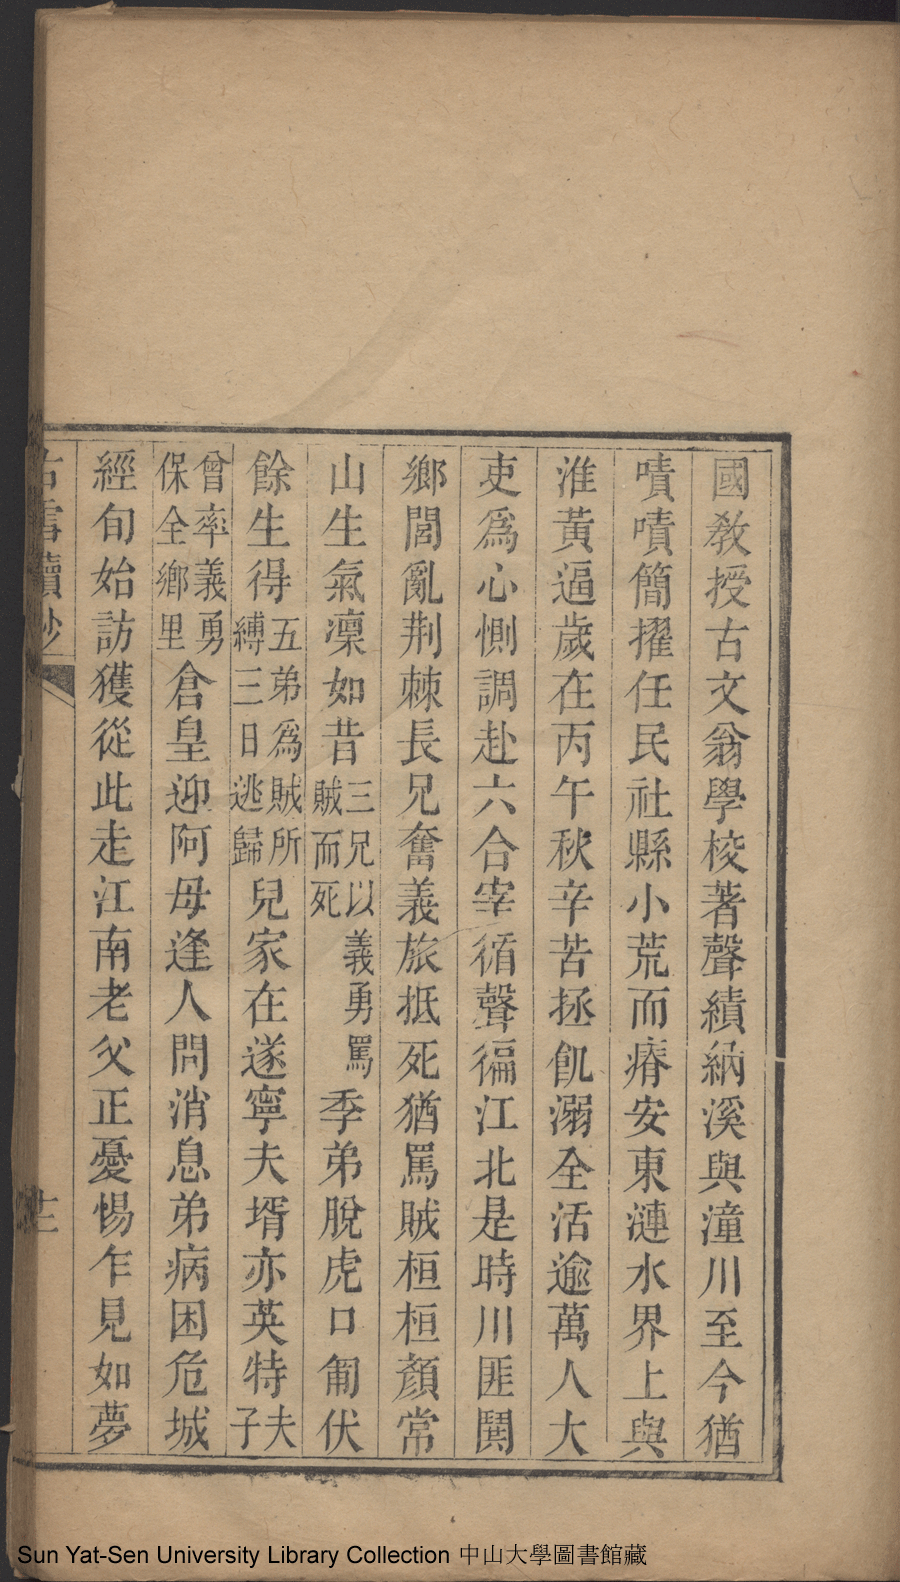 國教授古文翁學校著聲績納溪與潼川至今猶
嘖嘖簡擢任民社縣小荒而瘠安東漣水界上與
淮黃逼歲在丙午秋辛苦拯飢溺全活逾萬人大
吏爲心惻調赴六合宰循聲徧江北是時川匪鬨
鄉閭亂荆棘長兄奮義旅抵死猶罵賊桓桓顏常
山生氣凜如昔三兄以義勇罵賊而死季弟脫虎口匍伏
餘生得五弟爲賊所縛三日逃歸兒家在遂寧夫壻亦英特夫子
曾率義勇保全鄉里倉皇迎阿母逢人問消息弟病困危城
經旬始訪獲從此走江南老父正憂惕乍見如夢
古雪續鈔
Sun Yat-Sen University Library Collection 中山大學圖書館藏